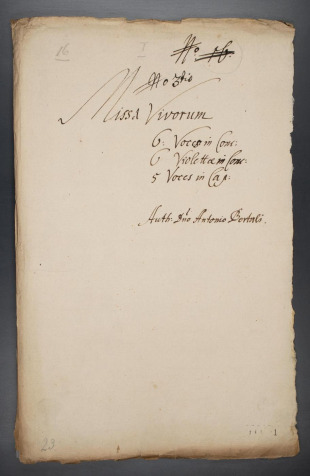 16
No 16.
No 3tio
Missa Vivorum
6: Voces in Conc:
6 Violettæ in Conc:
5 Voces in Cap:
Auth: Dno Antonio Bertali.
23